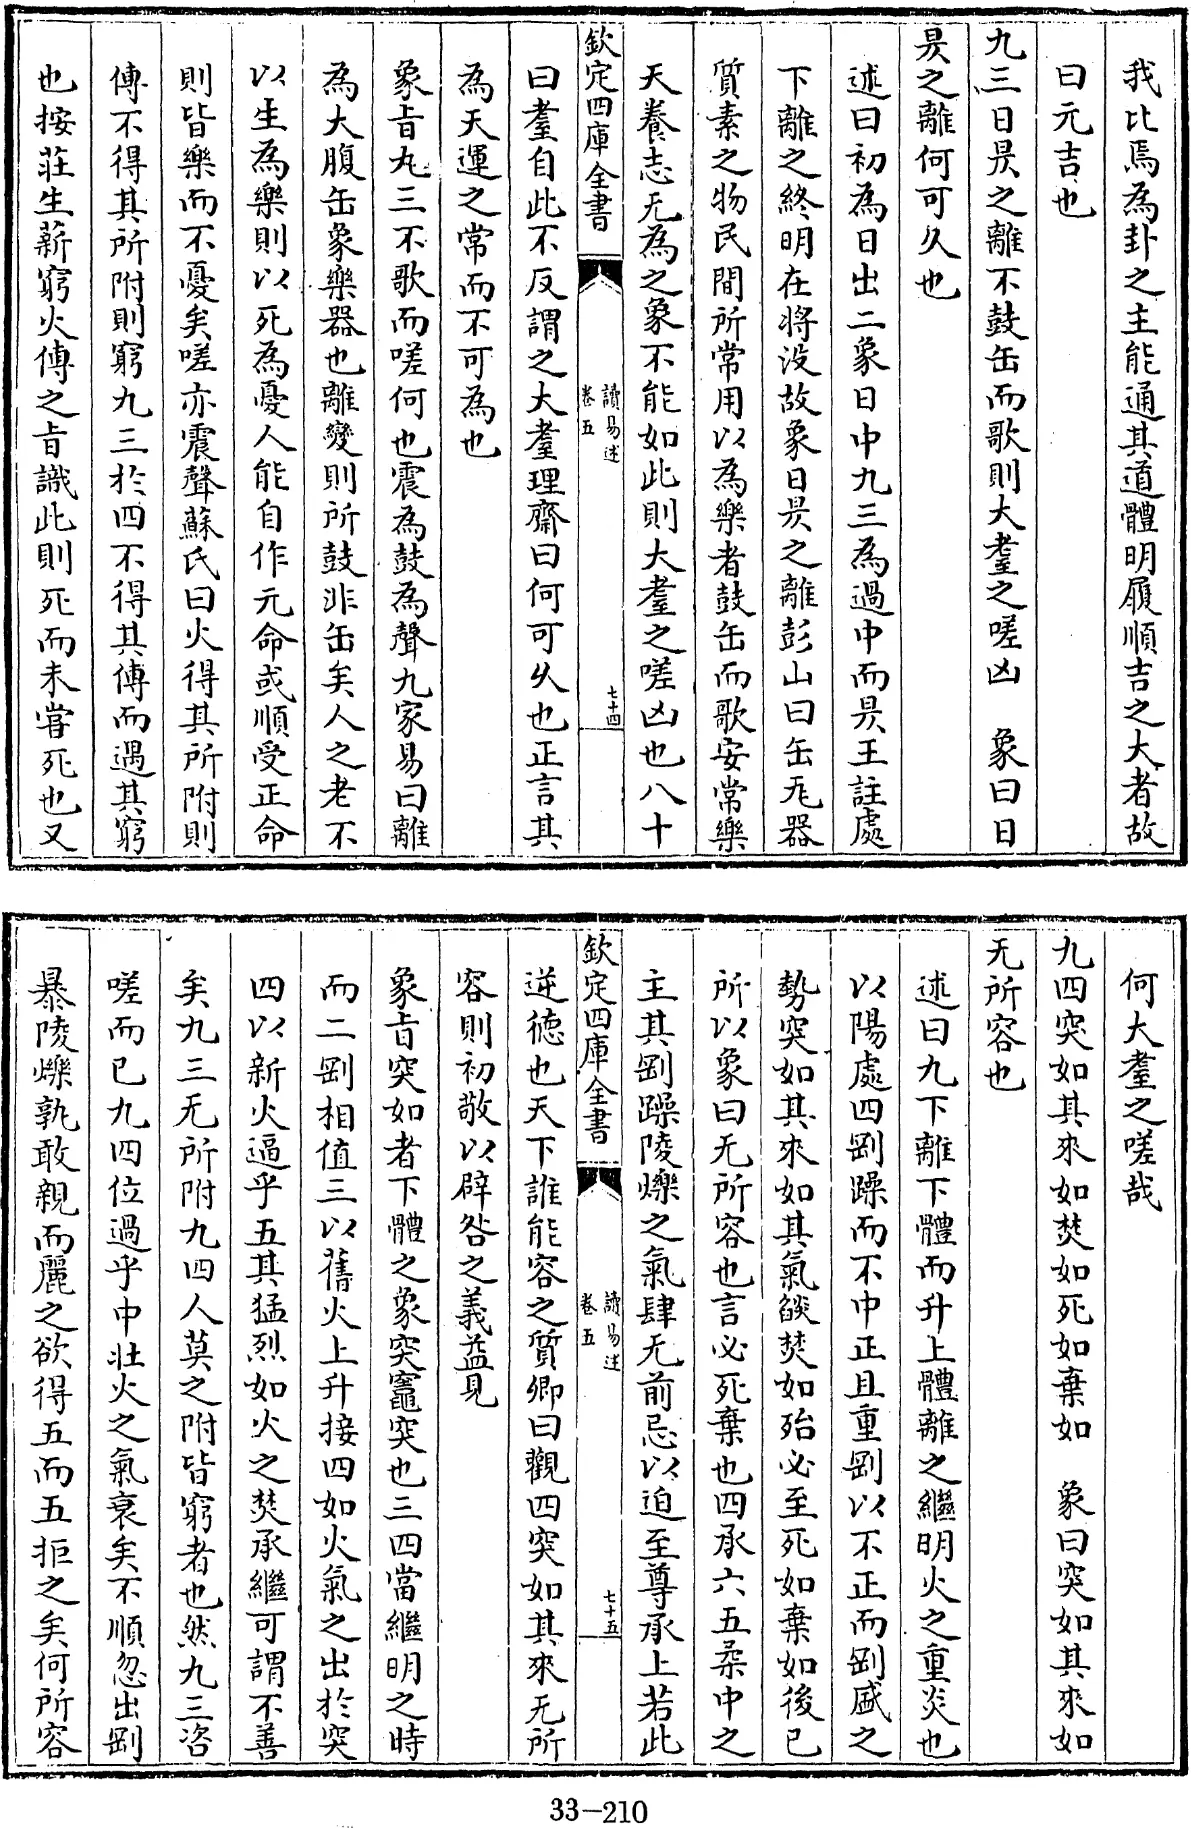 我比焉為卦之主能通其道體明履順吉之大者故
曰元吉也
九三日昃之離不鼓缶而歌則大耋之嗟凶　象曰日
昃之離何可久也
述曰初為日出二象日中九三為過中而昃王註處
下離之終明在將没故象日昃之離彭山曰缶瓦器
質素之物民間所常用以為樂者鼓缶而歌安常樂
天養志无為之象不能如此則大耋之嗟凶也八十
欽定四庫全書
讀易述
卷五
七十四
曰耋自此不反謂之大耋理齋曰何可久也正言其
為天運之常而不可為也
象旨九三不歌而嗟何也震為鼓為聲九家易曰離
為大腹缶象樂器也離變則所鼓非缶矣人之老不
以生為樂則以死為憂人能自作元命或順受正命
則皆樂而不憂矣嗟亦震聲蘇氏曰火得其所附則
傳不得其所附則窮九三於四不得其傳而遇其窮
也按莊生薪窮火傳之旨識此則死而未嘗死也又
何大耋之嗟哉
九四突如其來如焚如死如棄如　象曰突如其來如
无所容也
述曰九下離下體而升上體離之繼明火之重炎也
以陽處四剛躁而不中正且重剛以不正而剛盛之
勢突如其來如其氣燄焚如殆必至死如棄如後已
所以象曰无所容也言必死棄也四承六五柔中之
主其剛躁陵爍之氣肆无前忌以迫至尊承上若此
欽定四庫全書
讀易述
卷五
七十五
逆德也天下誰能容之質卿曰觀四突如其來无所
容則初敬以辟咎之義益見
象旨突如者下體之象突竈突也三四當繼明之時
而二剛相值三以舊火上升接四如火氣之出於突
四以新火逼乎五其猛烈如火之焚承繼可謂不善
矣九三无所附九四人莫之附皆窮者也然九三咨
嗟而已九四位過乎中壯火之氣衰矣不順忽出剛
暴陵爍孰敢親而麗之欲得五而五拒之矣何所容
33-210